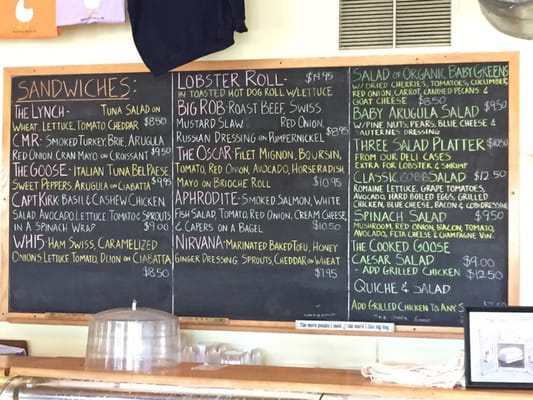 SANDWICHES:
THE LYNCH- TUNA SALAD ON
WHEAT, LETTUCE, TOMATO, CHEDDAR $8.50
CMR- SMOKED TURKEY, BRIE, ARUGULA
RED ONION, CRAN MAYO ON CROISSANT $9.50
THE GOOSE- ITALIAN TUNA BEL PAESE
SWEET PEPPERS, ARUGULA ON CIABATTA $9.95
CAPT KIRK BASIL & CASHEW CHICKEN
SALAD AVOCADO, LETTUCE, TOMATO, SPROUTS
IN A SPINACH WRAP $9.00
WH15- HAM, SWISS, CARAMELIZED
ONIONS LETTUCE TOMATO, DIJON ON CIABATTA
$8.50
LOBSTER ROLL- $14.95
IN TOASTED HOT DOG ROLL W/LETTUCE
BIG ROB- ROAST BEEF, SWISS
MUSTARD SLAW RED ONION,
RUSSIAN DRESSING ON PUMPERNICKEL $8.95
THE OSCAR- FILET MIGNON, BOURSIN,
TOMATO, RED ONION, AVOCADO, HORSERADISH
MAYO ON BRIOCHE ROLL $10.95
APHRODITE- SMOKED SALMON, WHITE
FISH SALAD, TOMATO, RED ONION, CREAM CHEESE,
& CAPERS ON A BAGEL $10.50
NIRVANA- MARINATED BAKED TOFU, HONEY
GINGER DRESSING SPROUTS, CHEDDAR ON WHEAT
$7.95
SALAD OF ORGANIC BABY GREENS
W/ DRIED CHERRIES, TOMATOES, CUCUMBER,
RED ONION, CARROT, CANDIED PECANS &
GOAT CHEESE $8.50
BABY ARUGULA SALAD $9.50
W/ PINE NUTS, PEARS, BLUE CHEESE &
SAUTERNES DRESSING
THREE SALAD PLATTER $10.50
FROM OUR DELI CASES
EXTRA FOR LOBSTER & SHRIMP
CLASSIC COBB SALAD $12.50
ROMAINE LETTUCE, GRAPE TOMATOES,
AVOCADO, HARD BOILED EGGS, GRILLED
CHICKEN, BLUE CHEESE, BACON & COBB DRESSING
SPINACH SALAD $9.50
MUSHROOM, RED ONION, BACON, TOMATO,
AVOCADO, FETA CHEESE & CHAMPAGNE VIN.
THE COOKED GOOSE
CAESAR SALAD $9.00
- ADD GRILLED CHICKEN $12.50
QUICHE & SALAD
ADD GRILLED CHICKEN TO ANY
The more people I meet, the more I like my dog.